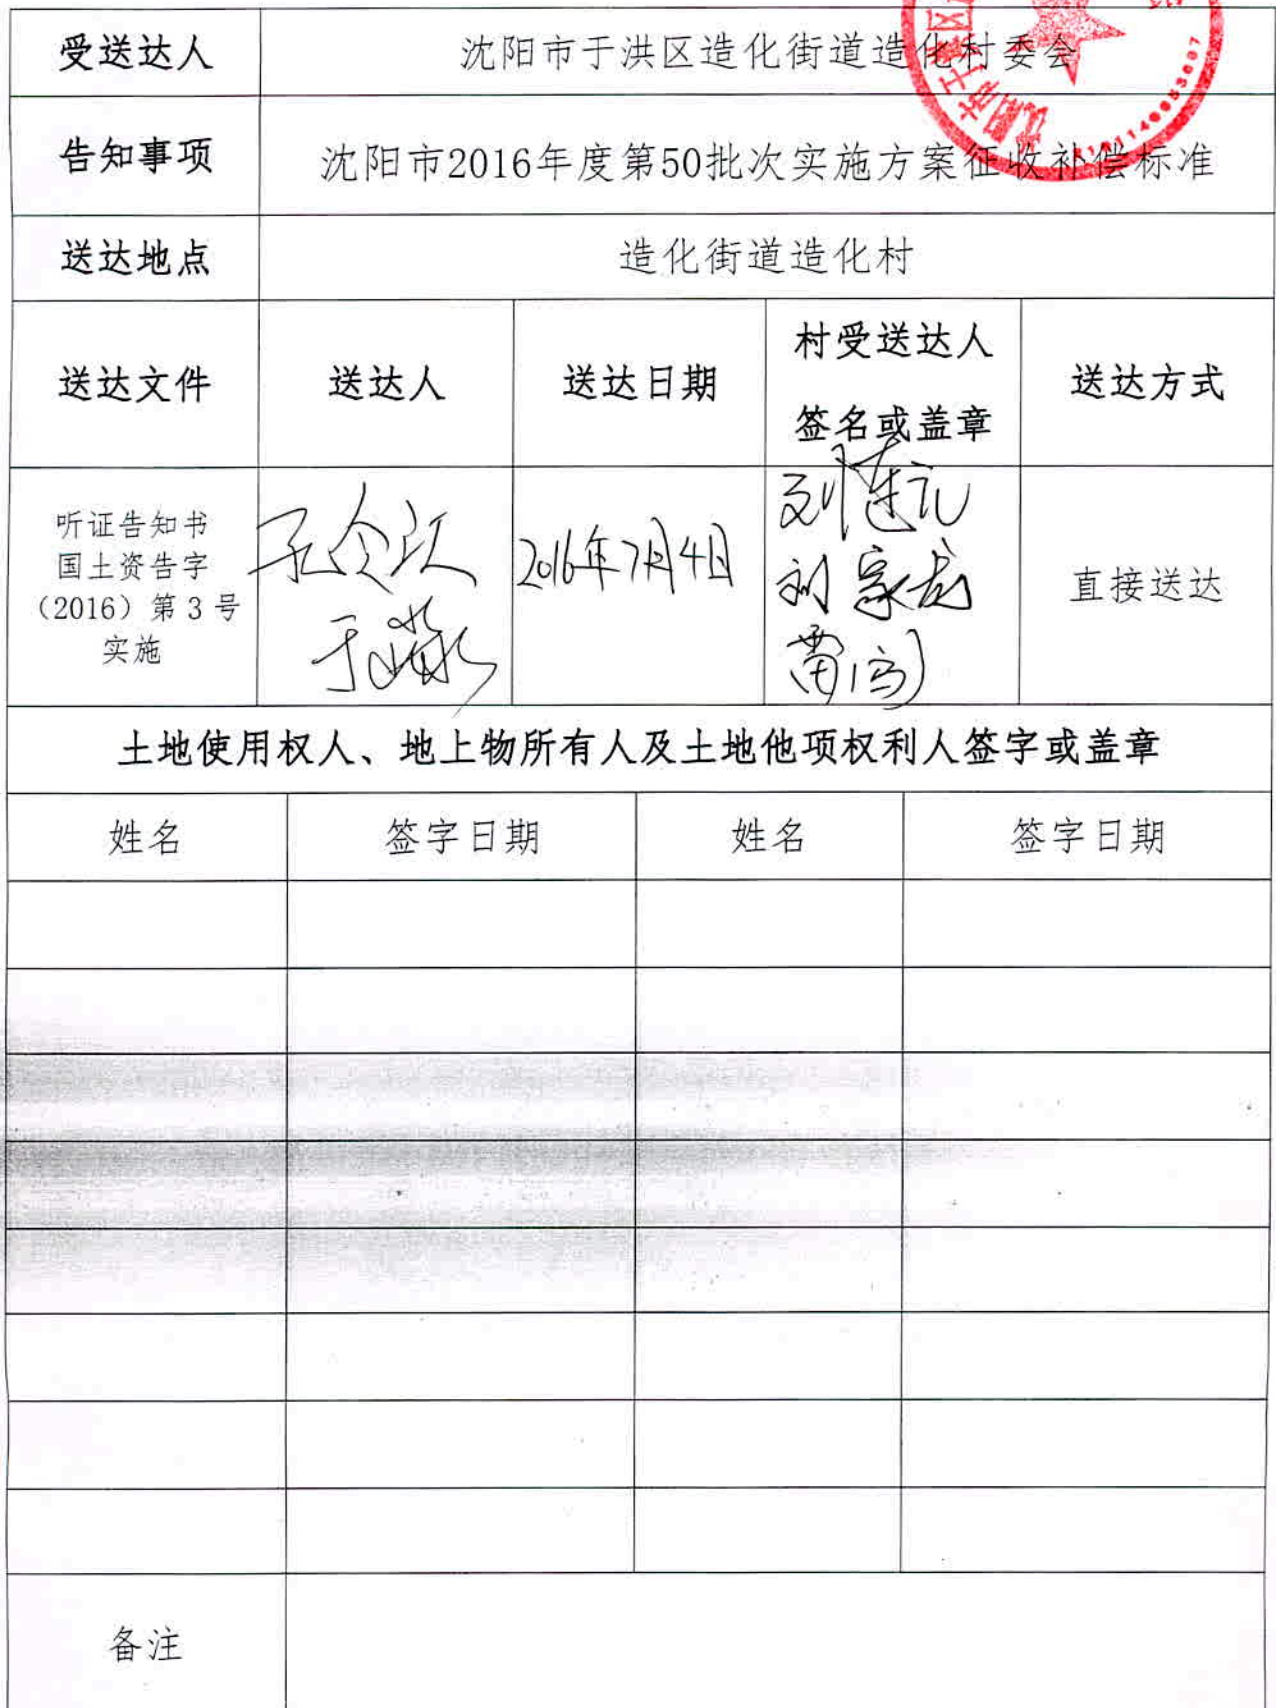 受送达人 沈阳市于洪区造化街道造化村委会
告知事项 沈阳市2016年度第50批次实施方案征收补偿标准
送达地点 造化街道造化村
送达文件 送达人 送达日期 村受送达人签名或盖章 送达方式
听证告知书
国土资告字
（2016）第3号
实施
2016年7月4日
刘家龙
直接送达
土地使用权人、地上物所有人及土地他项权利人签字或盖章
姓名 签字日期 姓名 签字日期
备注